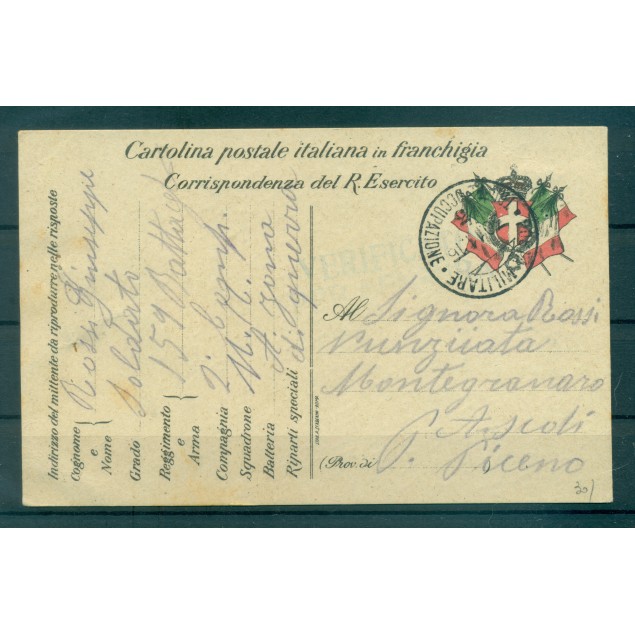 Cartolina postale italiana in franchigia
Corrispondenza del R. Esercito
MILITARE
OCCUPAZIONE
VERIFICATO
Indirizzo del mittente da riprodurre nelle risposte
Cognome e Nome { Rossi Giuseppe
Grado Soldato
Reggimento e Arma { 159 Battagl
Compagnia 2ª Comp.
Squadrone M. T.
Batteria A. Zona
Riparti speciali di guerra
Al Signora Rossi
Nunziata
Montegranaro
P. Ascoli
(Prov. di P. Piceno
30/